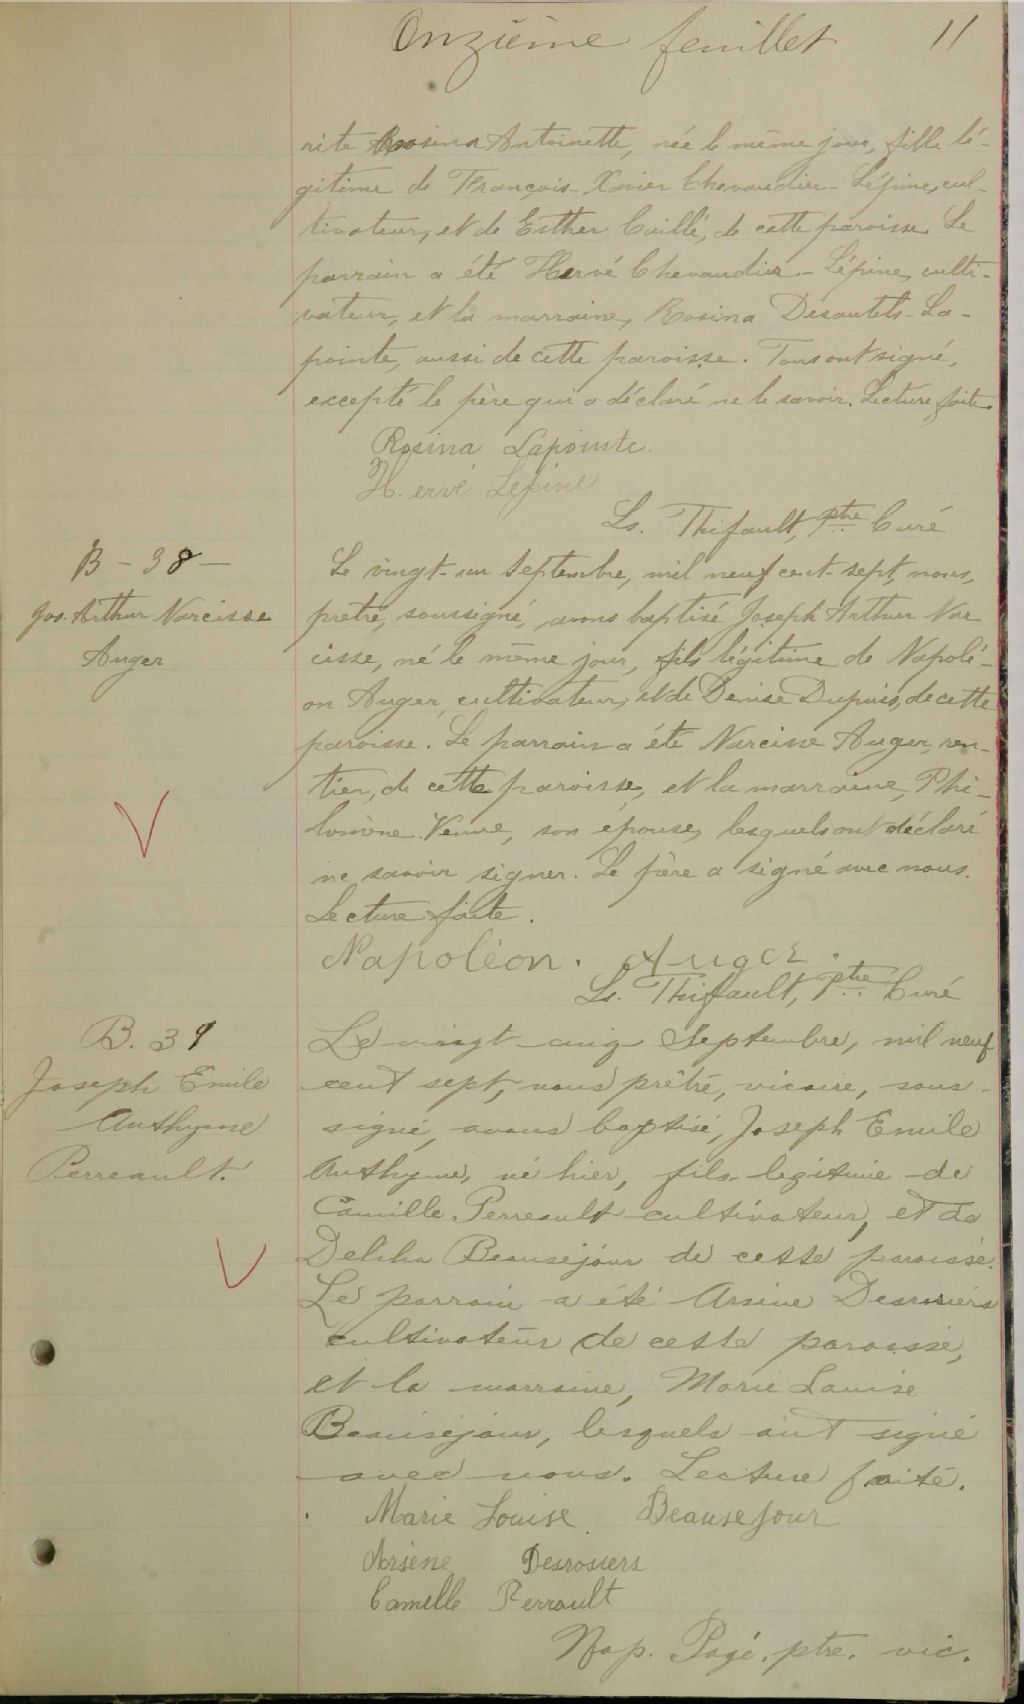 Onzième feuillet 11
rite Rosina Antoinette, née le même jour, fille lé-
gitime de François-Xavier Chevaudier-Lépine, cul-
tivateur, et de Esther Caillé, de cette paroisse. Le
parrain a été Hervé Chevaudier-Lépine, culti-
vateur, et la marraine, Rosina Desautels-La-
pointe, aussi de cette paroisse. Tous ont signé,
excepté le père qui a déclaré ne le savoir. Lecture faite.
Rosina Lapointe.
H. ervé Lépine
Ls. Thifault, Ptre Curé
B - 38 -
Jos. Arthur Narcisse
Auger
Le vingt-un Septembre, mil neuf cent-sept, nous,
prêtre, soussigné, avons baptisé Joseph Arthur Nar
cisse, né le même jour, fils légitime de Napolé-
on Auger, cultivateur, et de Denise Dupuis, de cette
paroisse. Le parrain a été Narcisse Auger, ren-
tier, de cette paroisse, et la marraine, Phi-
lomène Venne, son épouse, lesquels ont déclaré
ne savoir signer. Le père a signé avec nous.
Lecture faite.
Napoléon. Auger.
Ls. Thifault, Ptre Curé
B. 39
Joseph Emile
Anthyme
Perreault.
Le vingt-cinq Septembre, mil neuf
cent sept, nous prêtre, vicaire, sous-
signé, avons baptisé, Joseph Emile
Anthyme, né hier, fils legitime de
Camille Perreault cultivateur, et de
Delika Beausejour de cette paroisse.
Le parrain a été Arsène Desrosiers
cultivateur de cette paroisse,
et la marraine, Marie Louise
Beauséjour, lesquels ont signé
avec nous. Lecture faite.
Marie Louise Beausejour
Arsène Desrosiers
Camille Perrault
Nap. Pagé. ptre. vic.